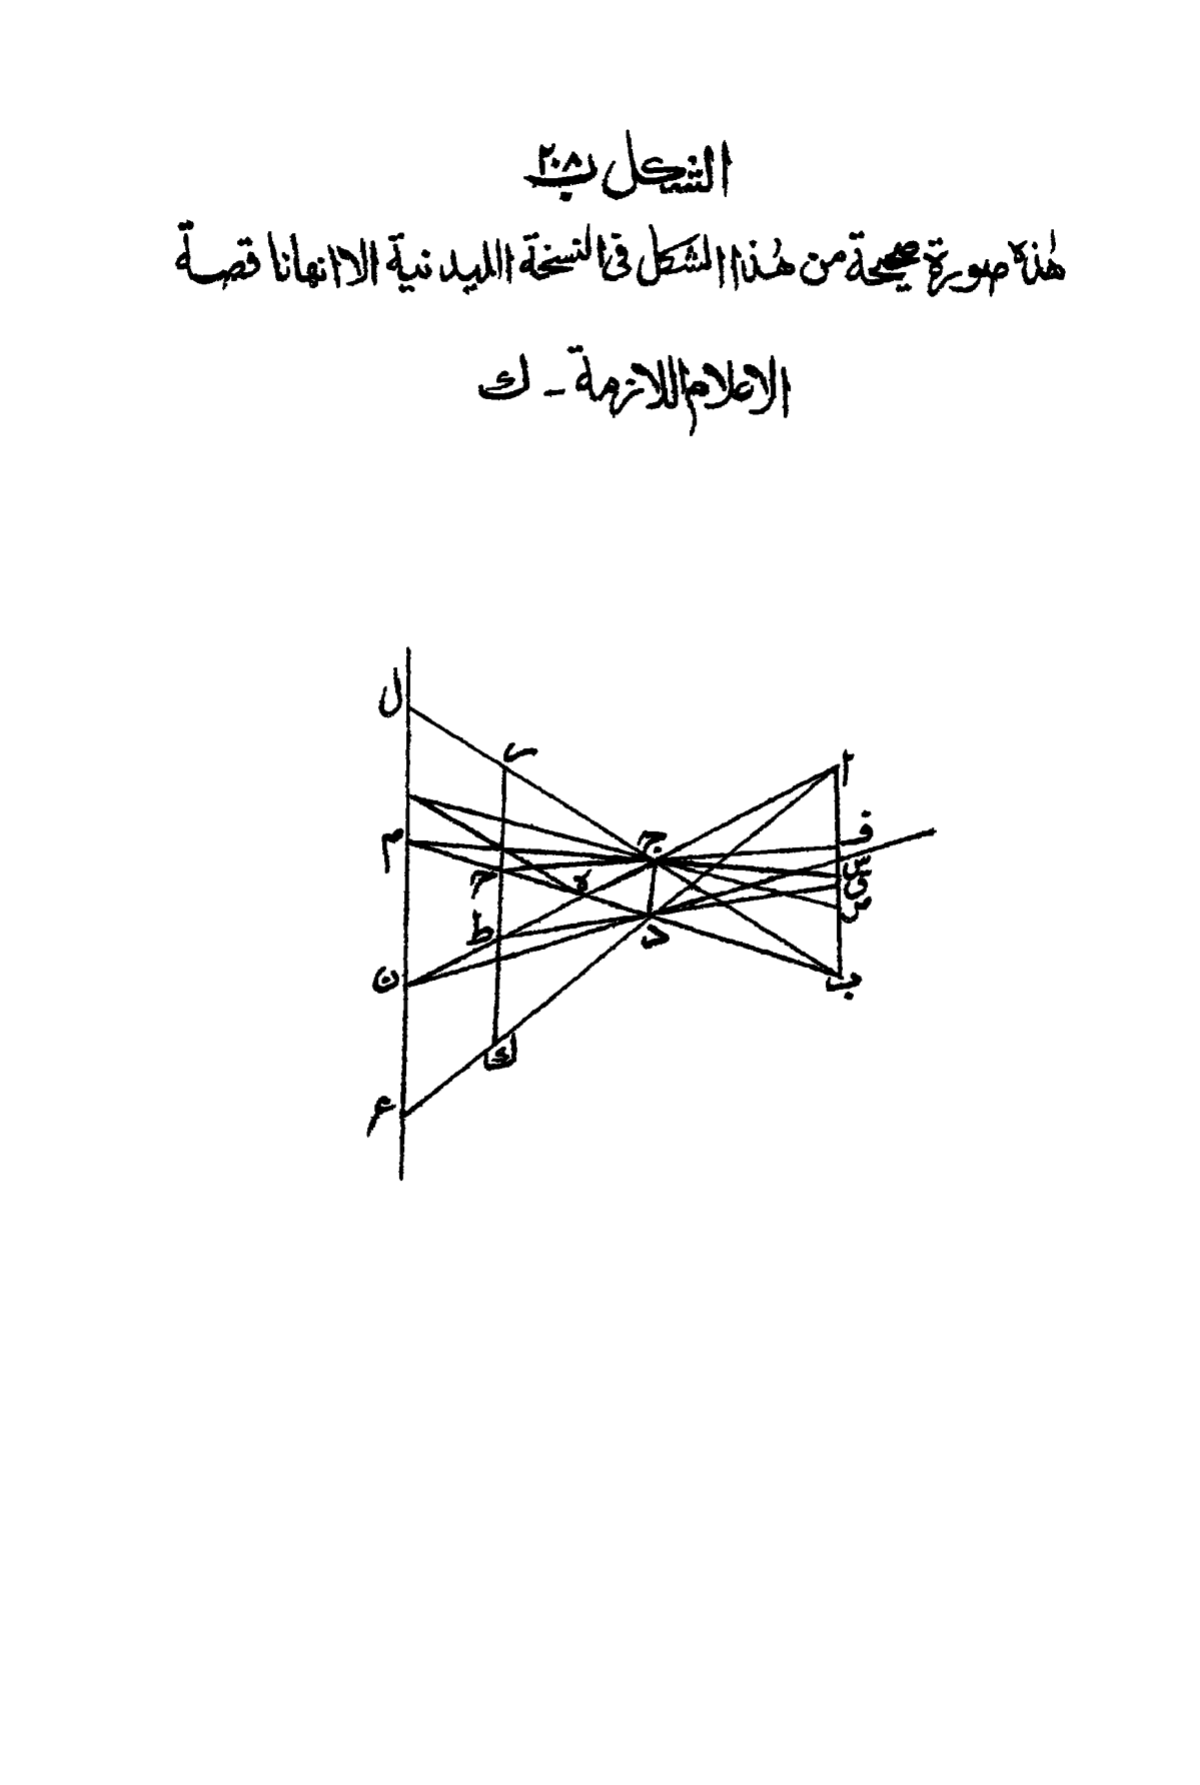 الشكل ب ٢٠٨
هٰذه صورة صحيحة من هٰذا الشكل فى النسخة الليدنية الا انها ناقصة
الاعلام اللازمة - ك
ل
ر
ا
ف
م
ج
س
ح
ه
ق
ص
ط
د
ن
ب
ك
ع